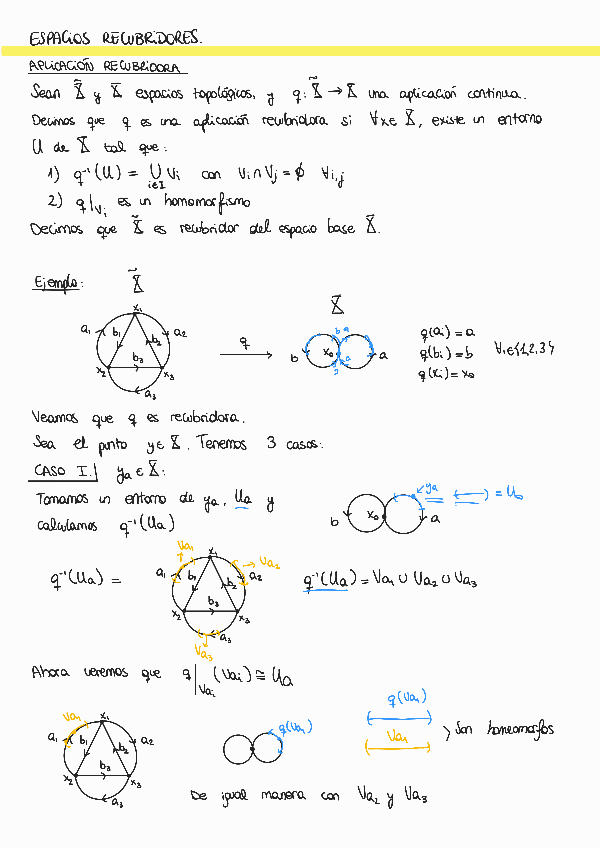 ESPACIOS RECUBRIDORES.
APLICACIÓN RECUBRIDORA
Sean X̃ y X espacios topológicos, y q: X̃ → X una aplicación continua.
Decimos que q es una aplicación recubridora si ∀x∈ X, existe un entorno
U de X tal que:
1) q⁻¹(U) = ⋃ Vi con Vi ∩ Vj = ∅ ∀i,j
i∈I
2) q|Vi es un homomorfismo
Decimos que X̃ es recubridor del espacio base X.
Ejemplo: X̃
X
x1
a1 b1 b2 a2
x2 b3 x3
a3
q
b a
b x0 a
b a
q(ai) = a
q(bi) = b ∀i∈{1,2,3}
q(xi) = x0
Veamos que q es recubridora.
Sea el punto y∈X. Tenemos 3 casos:
CASO I. ya ∈ X:
Tomamos un entorno de ya, Ua y
calculamos q⁻¹(Ua)
ya
b x0 a
( ) = Ub
q⁻¹(Ua) =
Va1 x1 Va2
a1 b1 b2 a2
x2 b3 x3
a3
Va3
q⁻¹(Ua) = Va1 ∪ Va2 ∪ Va3
Ahora veremos que q|Vai (Vai) ≅ Ua
Va1 x1
a1 b1 b2 a2
x2 b3 x3
a3
q(Va1)
q(Va1)
Va1
Son homeomorfos
De igual manera con Va2 y Va3